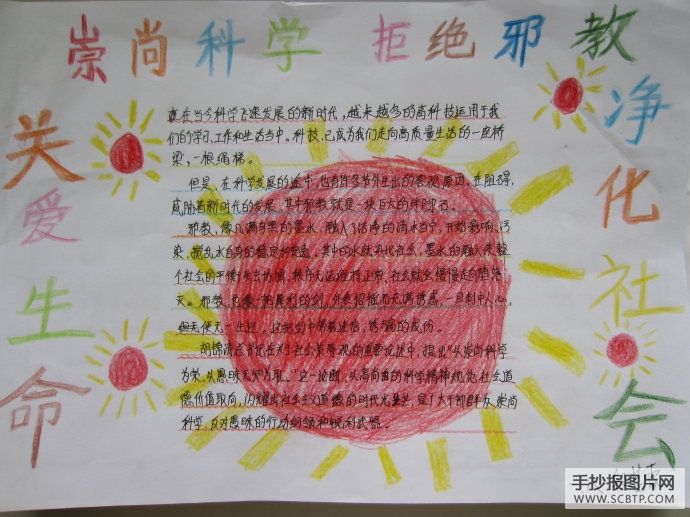 崇尚科学 拒绝邪教
关爱生命
净化社会
在当今科学飞速发展的新时代，越来越多的高科技运用于我
们的学习、工作和生活当中。科技，已成为我们走向高质量生活的一座桥
梁，一根绳梯。
但是，在科学发展的途中，也有许多节外生出的客观原因，在阻碍，
威胁着新时代的发展。其中邪教就是一块巨大的绊脚石。
邪教，像几滴乌黑的墨水，融入了洁净的清水当中，开始影响、污
染、搅乱水自身的稳定和安逸。其中的水就为代社会，墨水的融入使整
个社会的平衡失去协调，秩序无法维持正常，社会就会慢慢走向堕落
灭。邪教，也像一把犀利的剑，外表招摇而充满诱惑，一旦刺中人心，
便无使天一生还。这把剑中带着迷信、诱骗的成份。
胡锦涛总书记在关于社会荣辱观的重要论述中，提出“以崇尚科学
为荣，以愚昧无知为耻。”这一论断，以高尚的科学精神规范社会道
德价值取向，闪耀出社会主义道德的时代光芒，是广大干部群众崇尚
科学，反对愚昧的行动纲领和锐利武器。
手抄报图片网
WWW.SCBTP.COM